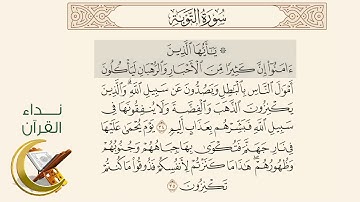 سُورَةُ التَّوْبَةِ
۞ يَٰٓأَيُّهَا ٱلَّذِينَ
ءَامَنُوٓا۟ إِنَّ كَثِيرًا مِّنَ ٱلْأَحْبَارِ وَٱلرُّهْبَانِ لَيَأْكُلُونَ
أَمْوَٰلَ ٱلنَّاسِ بِٱلْبَٰطِلِ وَيَصُدُّونَ عَن سَبِيلِ ٱللَّهِ ۗ وَٱلَّذِينَ
يَكْنِزُونَ ٱلذَّهَبَ وَٱلْفِضَّةَ وَلَا يُنفِقُونَهَا فِى
سَبِيلِ ٱللَّهِ فَبَشِّرْهُم بِعَذَابٍ أَلِيمٍ ٣٤ يَوْمَ يُحْمَىٰ عَلَيْهَا
فِى نَارِ جَهَنَّمَ فَتُكْوَىٰ بِهَا جِبَاهُهُمْ وَجُنُوبُهُمْ
وَظُهُورُهُمْ ۖ هَٰذَا مَا كَنَزْتُمْ لِأَنفُسِكُمْ فَذُوقُوا۟ مَا كُنتُمْ
تَكْنِزُونَ ٣٥
نداء
القرآن